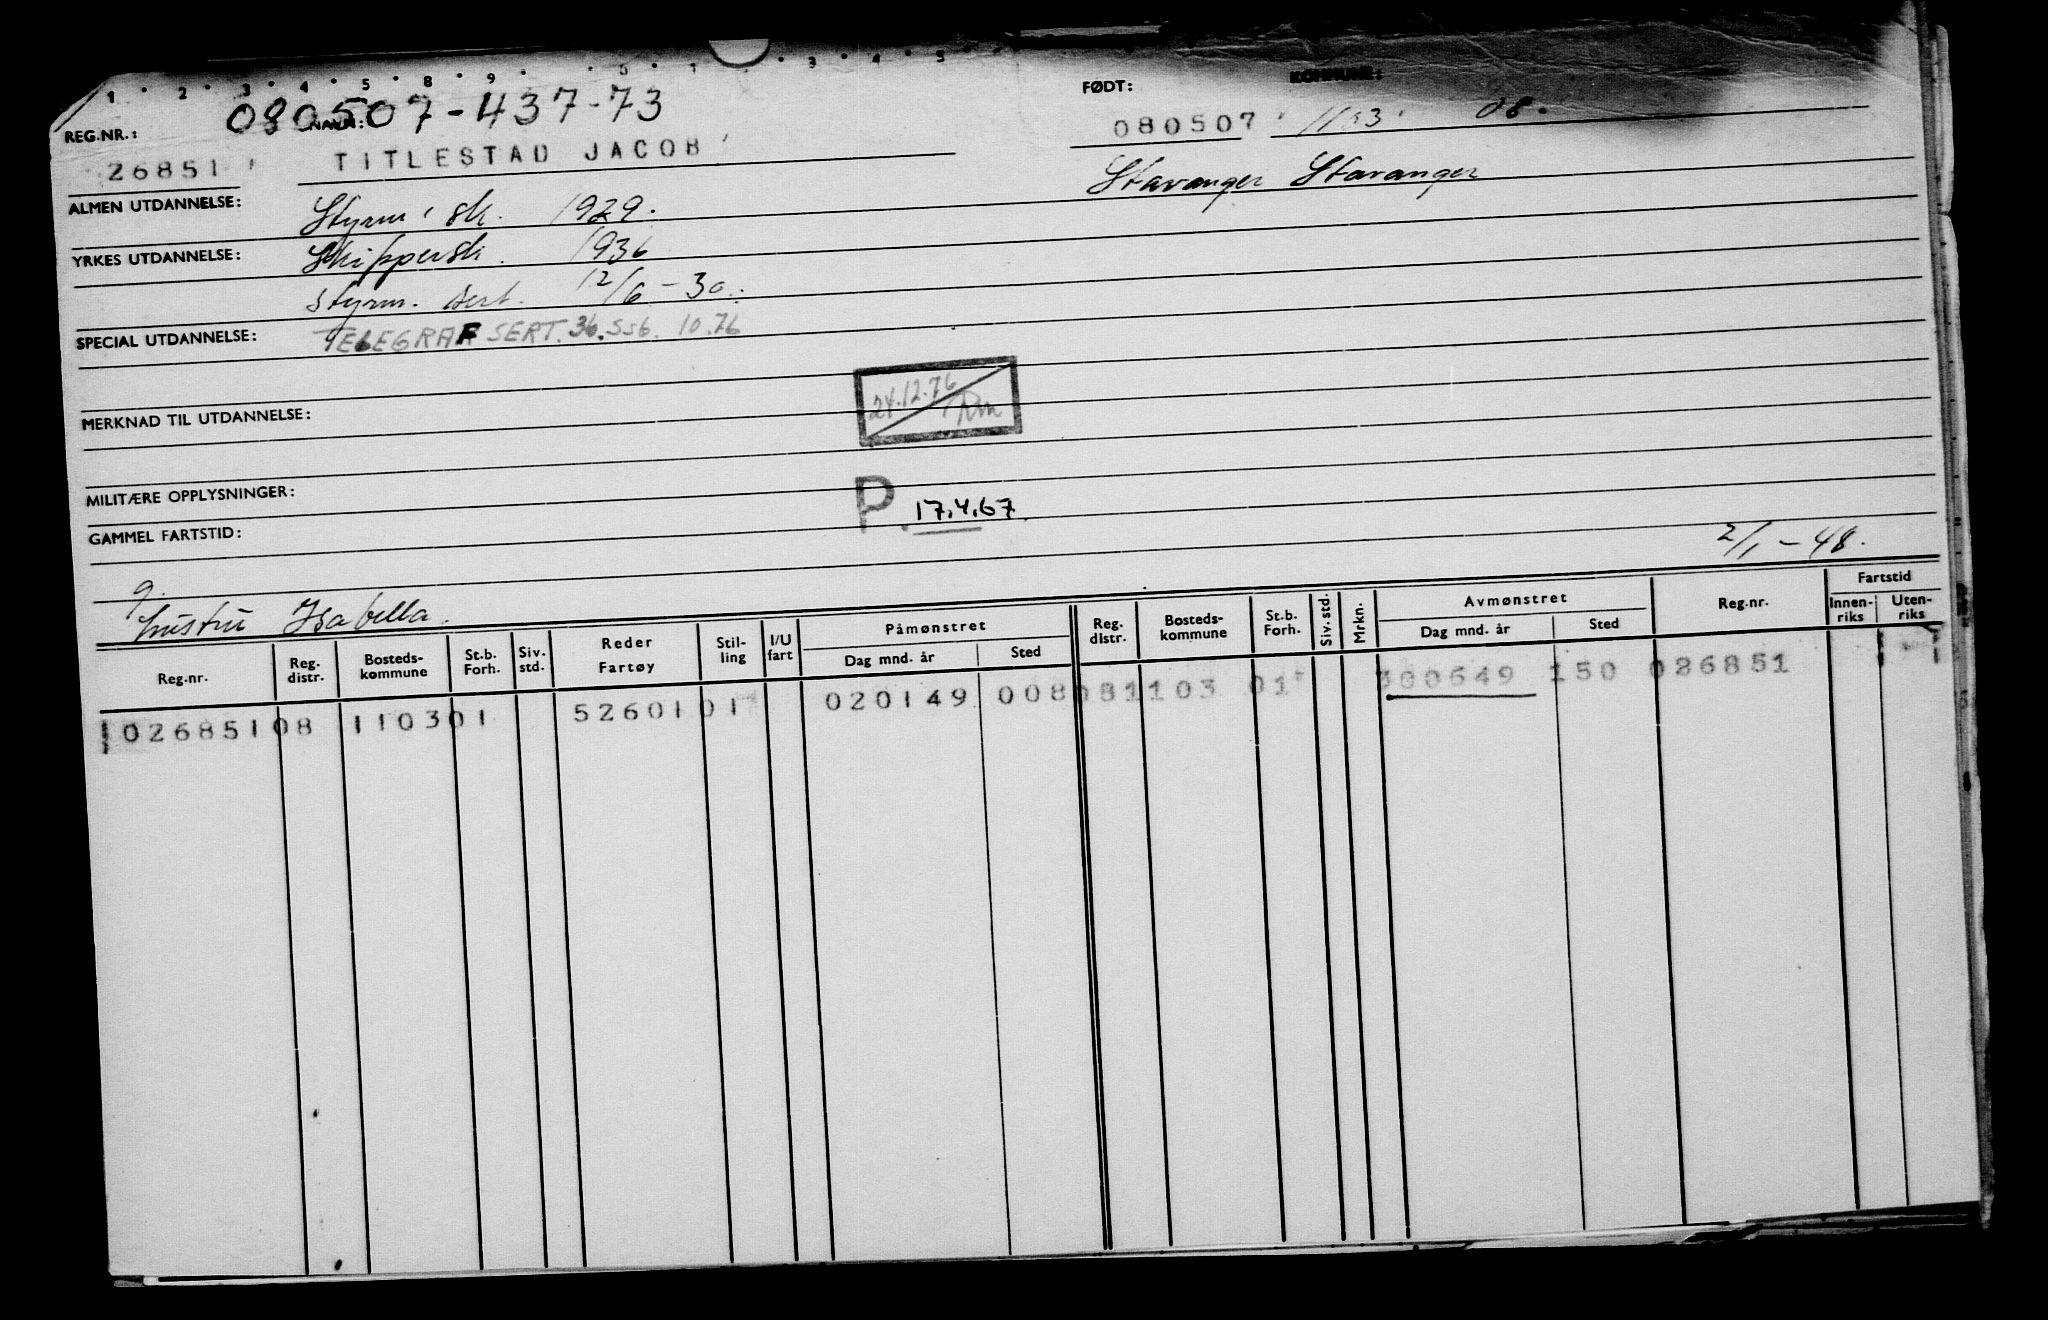 1 · 2 · 3 · 4 · 5 · 8 · 9 · 3 · 4 · 5
080507-437-73
REG.NR.: NAVN: FØDT: KOMMUNE:
26851 TITLESTAD JACOB 080507 1103 08.
ALMEN UTDANNELSE: Styrm. sk. 1929. Stavanger Stavanger
YRKES UTDANNELSE: Skippersk. 1936
Styrm. sert. 12/6-30.
SPECIAL UTDANNELSE: TELEGRAF SERT. 36.556. 10.76
24.12.76
MERKNAD TIL UTDANNELSE:
MILITÆRE OPPLYSNINGER:
P. 17.4.67
GAMMEL FARTSTID:
2/1-48.
g.
hustru Isabella.
Reg.nr. Reg. distr. Bosteds-kommune St.b. Forh. Siv. std. Reder Fartøy Stil-ling I/U fart Påmønstret Dag mnd. år Sted Reg. distr. Bosteds-kommune St.b. Forh. Siv. std. Mrkn. Avmønstret Dag mnd. år Sted Reg.nr. Fartstid Innen-riks Uten-riks
026851 08 1103 01 52601 01 020149 008 08 1103 01 300649 150 026851